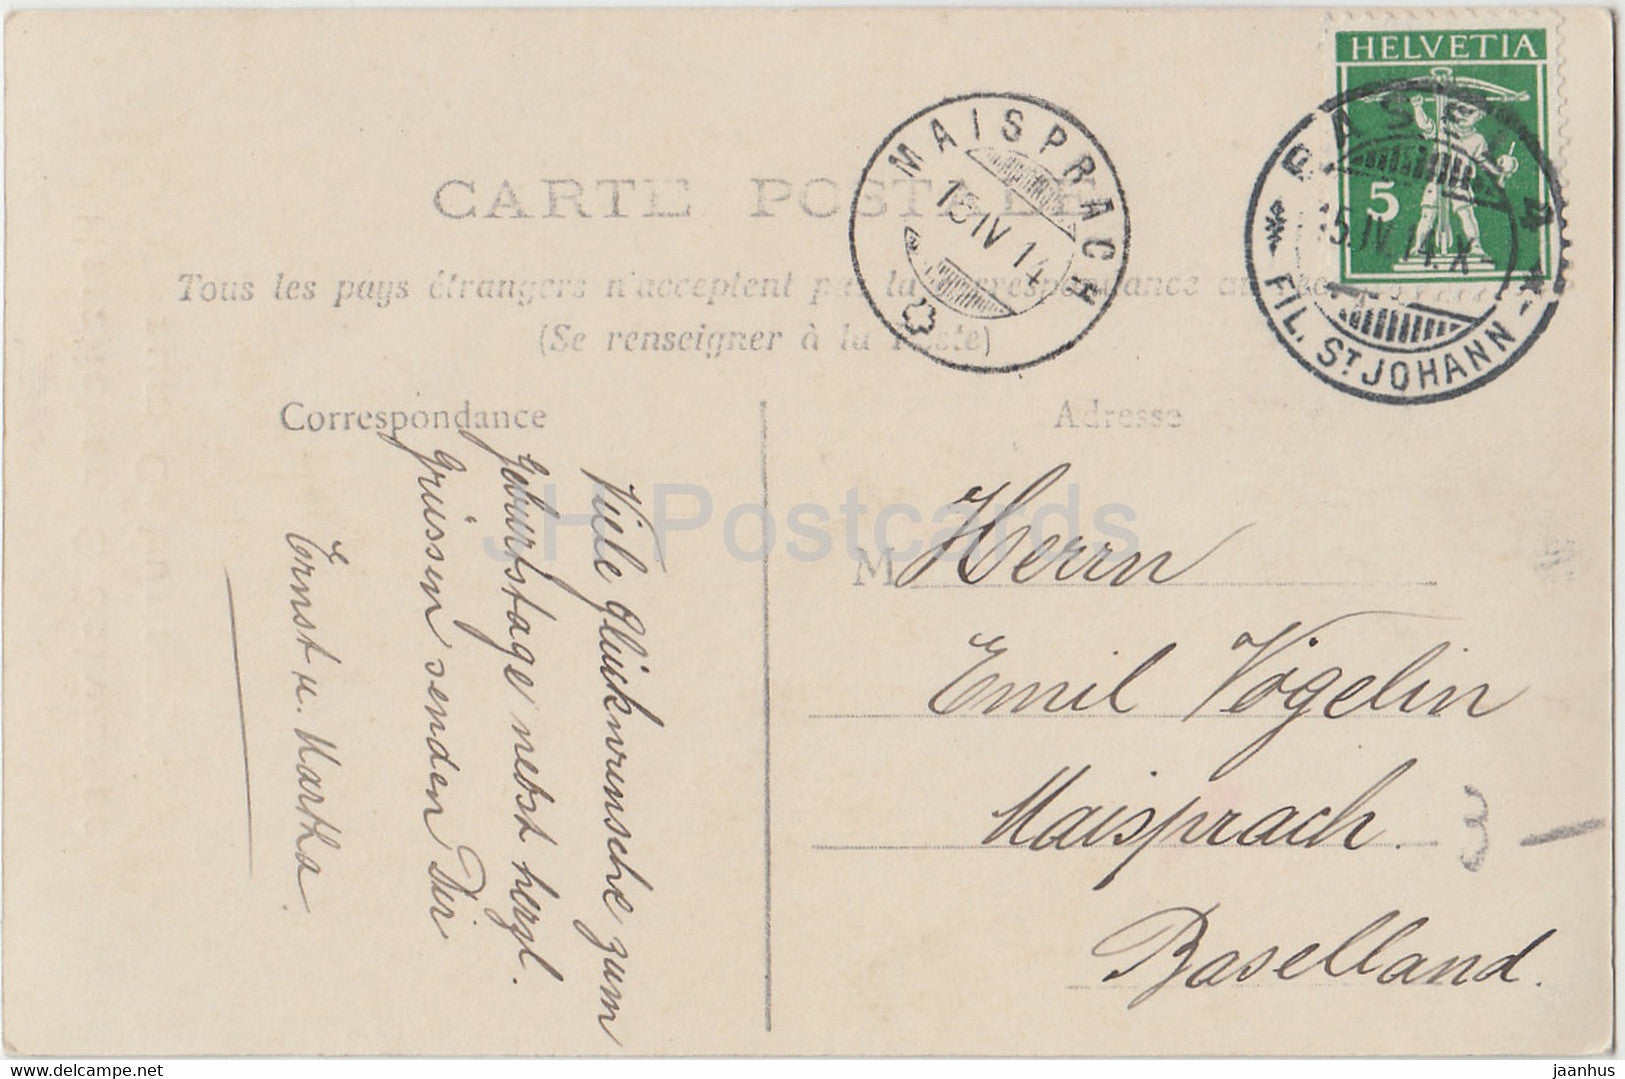 HELVETIA
5
BASEL 2
15.IV.14.X-
FIL. ST JOHANN
MAISPRACH
15 IV 14
CARTE POSTALE
Tous les pays étrangers n'acceptent pas la correspondance au
(Se renseigner à la Poste)
Correspondance
Adresse
Viele Glückwünsche zum
Geburtstage nebst herzl.
Grüssen senden Dir
Ernst u. Martha.
M
Herrn
Emil Vögelin
Maisprach.
Baselland.
JH Postcards
delcampe.net
jaanhus